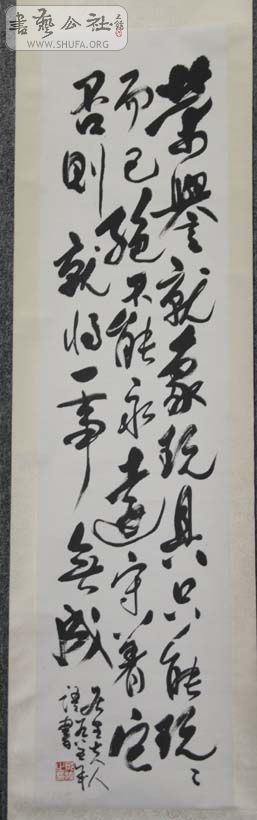 書藝公社
WWW.SHUFA.ORG
榮譽就象玩具只能玩〻
而已絕不能永遠守着它
否則就将一事無成
居里夫人
語書